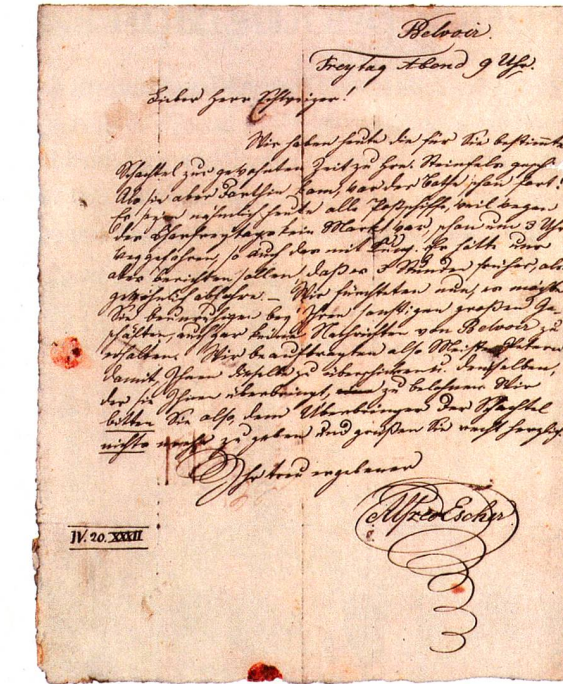 Belvoir.
Freytag Abend 9 Uhr.
Lieber Herr Schweizer!
Wir haben heute die für Sie bestimmte
Schachtel zur gewohnten Zeit zu Hrn. Steinfels
Als sie aber dorthin kam, war der Bothe schon fort.
Es seyen nähmlich heute alle weil wegen
des Charfreytags kein Markt war, schon um 3 Uhr
weggefahren, so auch der mit Er hätte uns
aber berichten sollen, daß er 3 Stunden früher, als
gewöhnlich abfahre. – Wir fürchteten nun, es möchte
Sie beunruhigen bey Ihren sonstigen großen Ge-
schäften, auch gar keine Nachrichten von Belvoir zu
erhalten. Wir beauftragten also Meister
damit, Ihnen dieselbe zu überschicken u. denselben,
der sie Ihnen überbringt, zu belohnen. Wir
bitten Sie also, dem Überbringer der Schachtel
nichts mehr zu geben und grüßen Sie recht herzlich.
Ihr treu ergebener
Alfred Escher.
IV. 20. XXXII